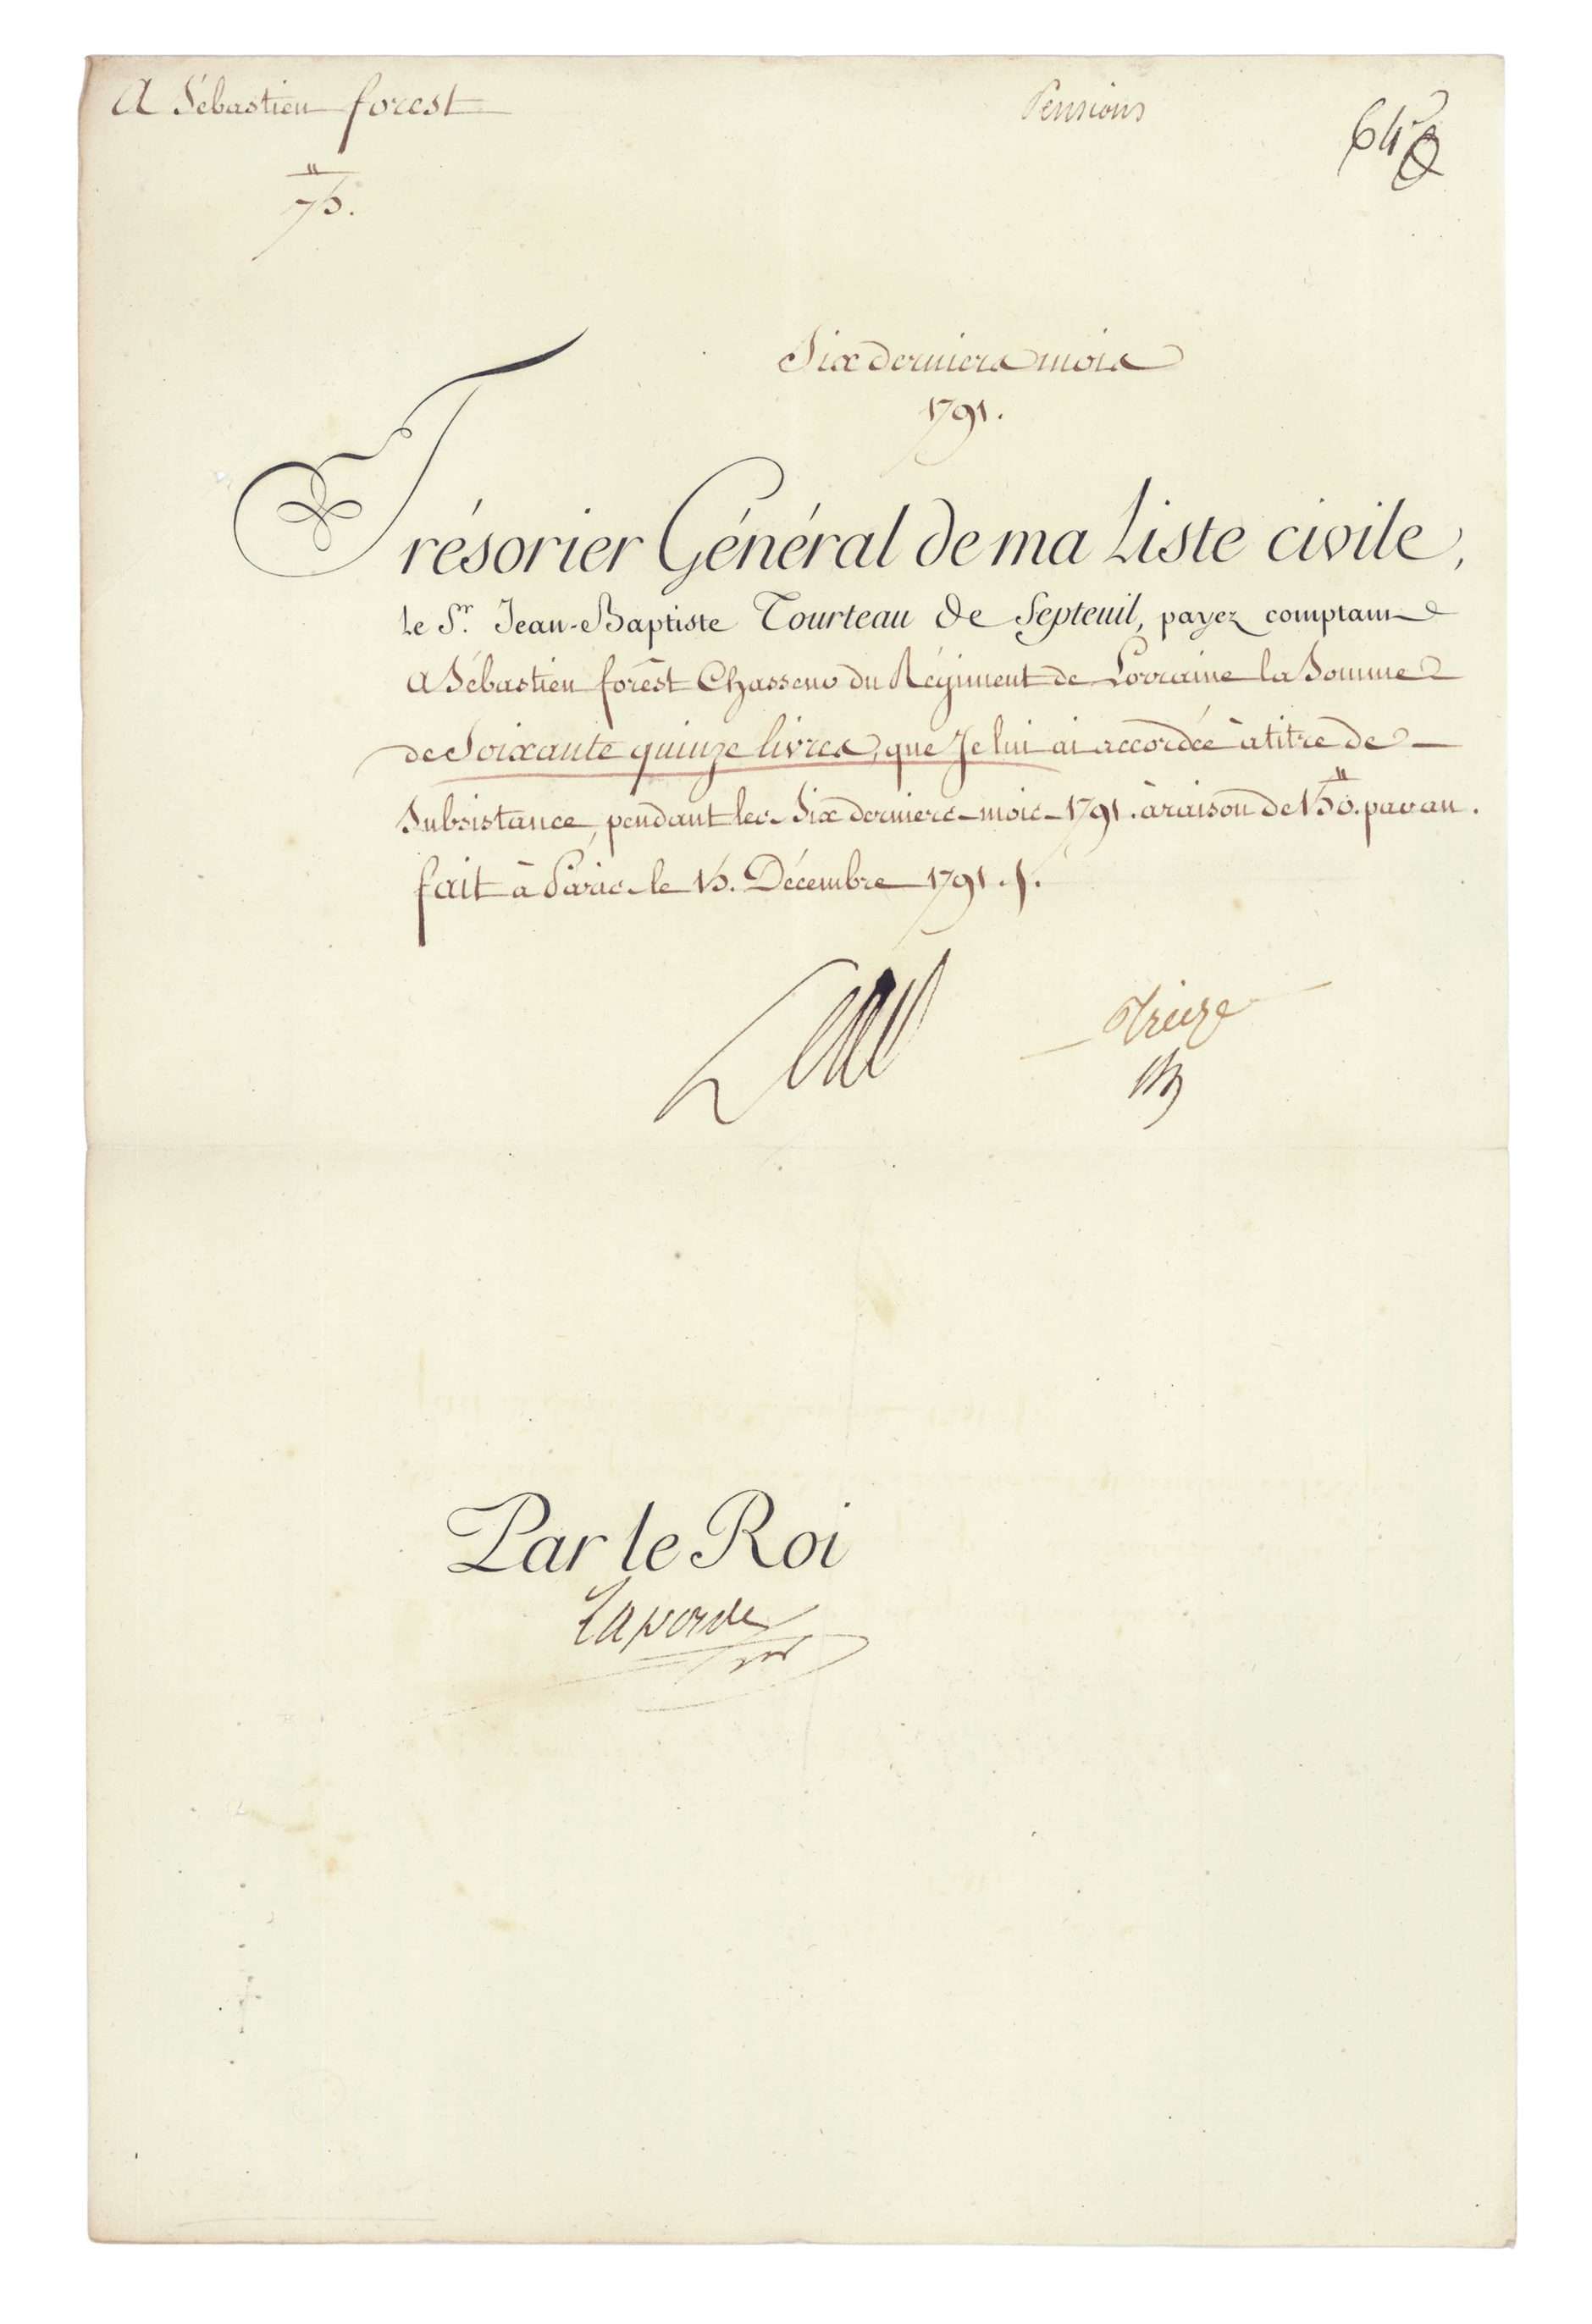 A Sébastien forest
Pensions
64
75.
Six derniers mois
1791.
Trésorier Général de ma Liste civile,
le Sr. Jean-Baptiste Tourteau de Septeuil, payez comptant
A Sébastien forest Chasseur du Régiment de Lorraine la Somme
de Soixante quinze livres, que Je lui ai accordée à titre de
Subsistance, pendant les Six derniers mois 1791. à raison de 150. par an.
fait à Paris le 15. Décembre 1791.
Louis
treize
Par le Roi
Laporte